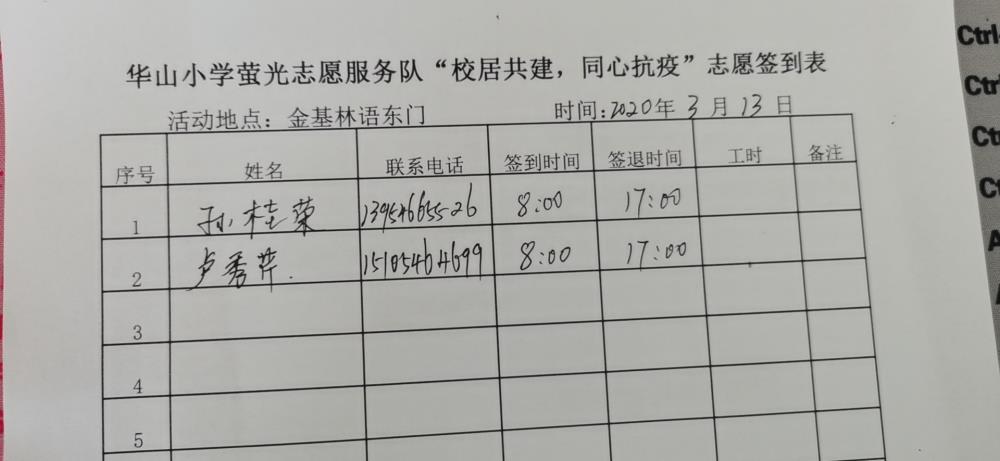 华山小学萤光志愿服务队“校居共建，同心抗疫”志愿签到表
活动地点：金基林语东门 时间:2020年 3 月 13 日
序号 姓名 联系电话 签到时间 签退时间 工时 备注
1 孙桂荣 13954665526 8:00 17:00
2 卢秀芹. 15105464699 8:00 17:00
3
4
5
Ctrl
Ctr
Ct
C
A